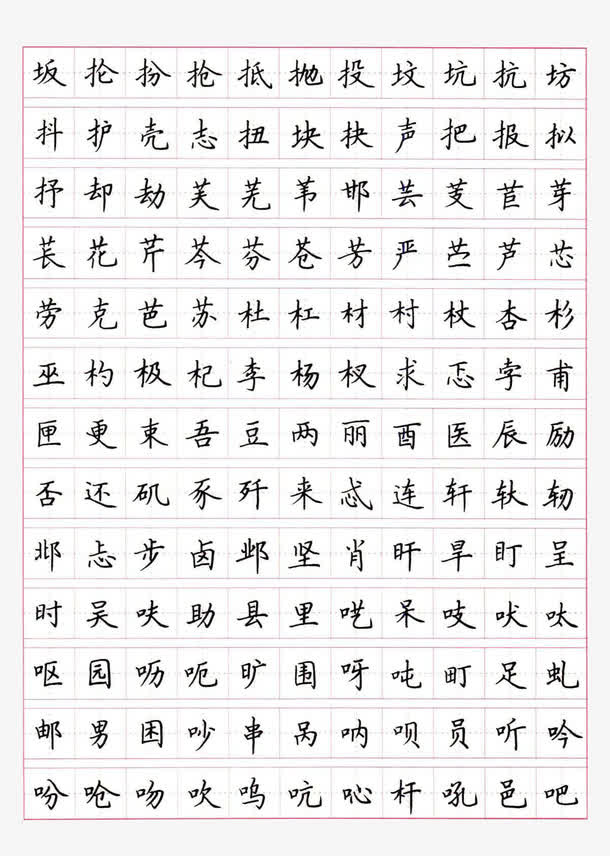 坂抡扮抢抵抛投坟坑抗坊
抖护壳志扭块抉声把报拟
抒却劫芙芜苇邯芸芰苣芽
苌花芹芩芬苍芳严苎芦芯
劳克芭苏杜杠材村杖杏杉
巫杓极杞李杨杈求忑孛甫
匣更束吾豆两丽酉医辰励
否还矶豕歼来忒连轩轪轫
邶忐步卤邺坚肖旰旱盯呈
时吴呋助县里呓呆吱吠呔
呕园呖呃旷围呀吨町足虬
邮男困吵串呙呐呗员听吟
吩呛吻吹呜吭吣杆吼邑吧